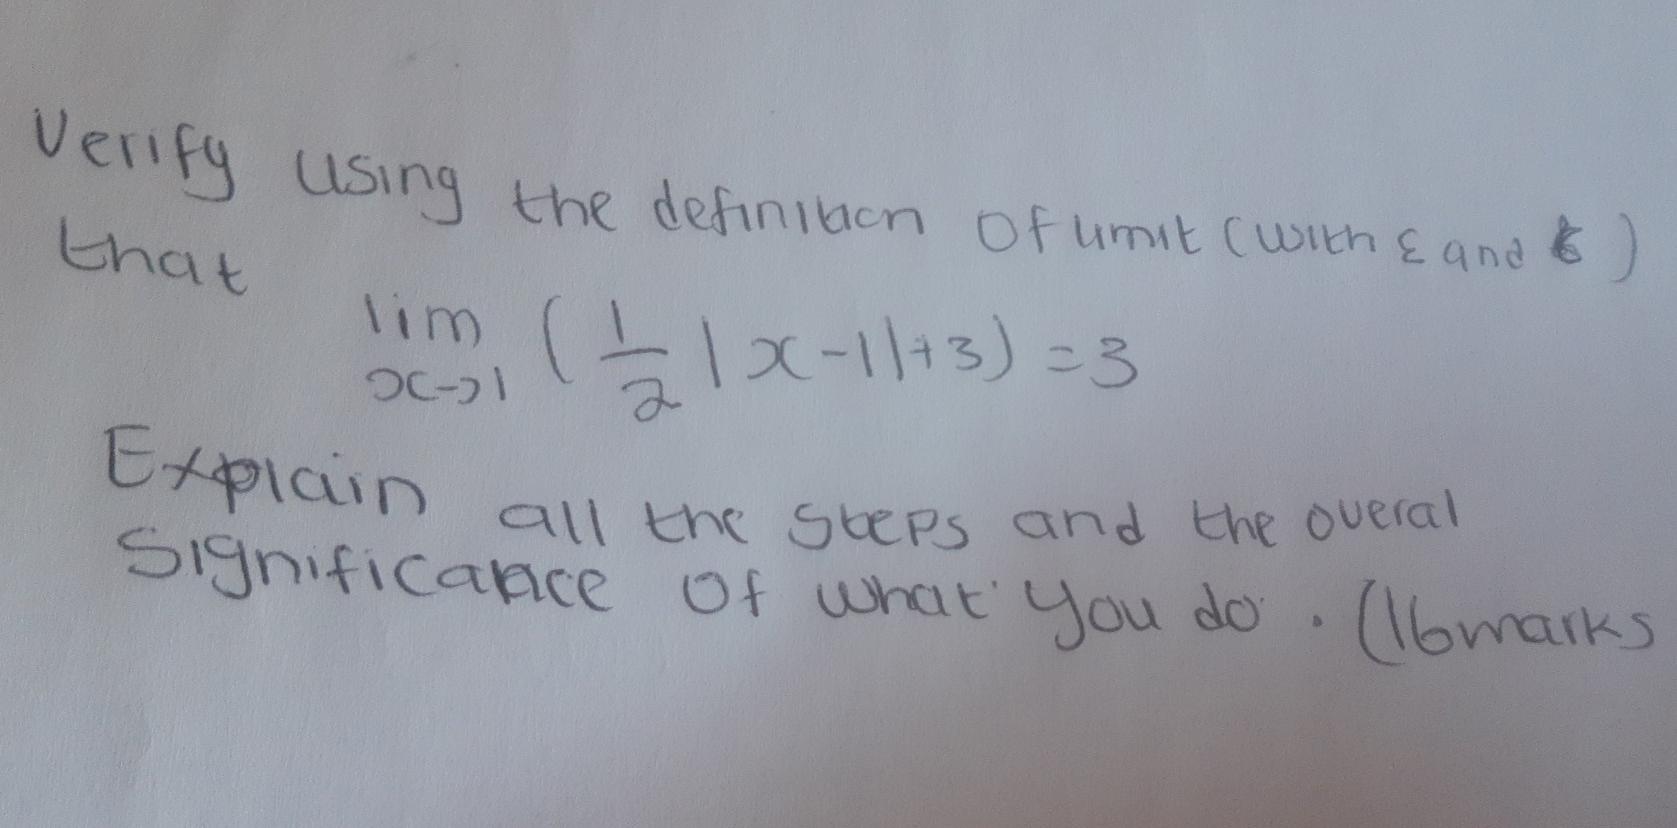 Verify using the definition of limit (with ε and δ)
that
lim x->1 (1/2 |x-1|+3) = 3
Explain all the steps and the overal
Significance of what you do. (16marks